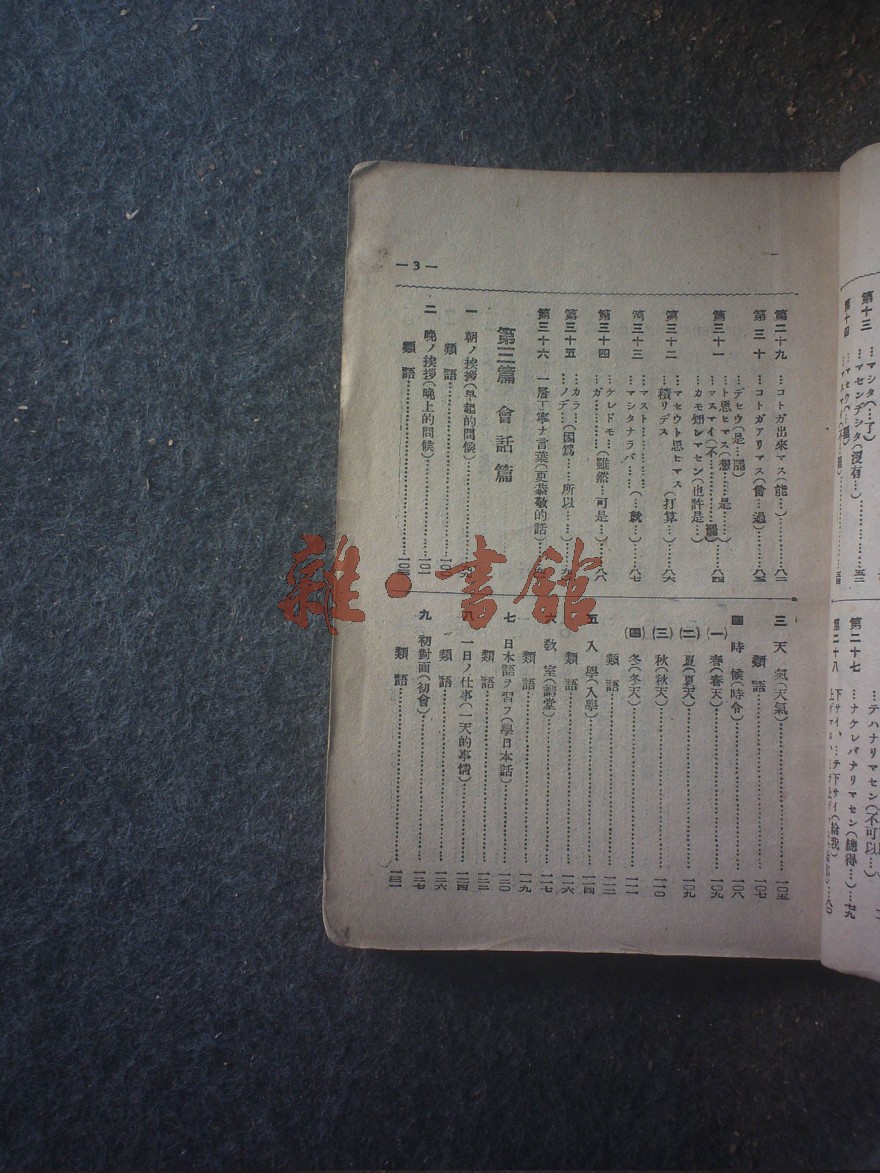 —3—
第二十九 …コトガ出來マス(能…)…八二
第三十 …コトガアリマス(曾…過)…八三
第三十一 …デセウ(是…罷)
…ト思ヒマス(想…是…)
…マスマイ(不…罷)…八四
…カモ知レマセン(也許是…)
第三十二 …マセウト思ヒマス
…積リデス (打算…)…八六
第三十三 …マスト…
…マシタナラバ…(…就…)…八七
第三十四 …ケレドモ…(雖然…可是…)
…ガ…八八
第三十五 …カラ…(因爲…所以…)
…ノデ…
第三十六 一層丁寧ナ言葉(更恭敬的話)
第三篇 會話篇
一 朝ノ挨拶(早起的問候)
類語
二 晚ノ挨拶(晚上的問候)…一〇一
類語
三 天氣(天氣)…一〇五
類語…一〇七
四 時候(時令)…一〇八
(一) 春(春天)…一〇九
(二) 夏(夏天)…一〇九
(三) 秋(秋天)…一一〇
(四) 冬(冬天)…一一一
類語…一一二
五 入學(入學)…一一四
類語…一一六
六 教室(講堂)…一一七
類語…一一九
七 日本語ヲ習フ(學日本話)…一二〇
類語…一二二
八 一日ノ仕事(一天的事情)…一二四
類語…一二六
九 初對面(初會)…一二七
類語…一三一
第十三 …マシタ(…了)
…マセンデシタ(沒有…)…五二
第十四 …マセウ
…テハナリマセン(不可以…)
第二十七 …ナクレバナリマセン(總得…)…七九
第二十八 …下サイ、…テ下サイ(給我)
雜·書館